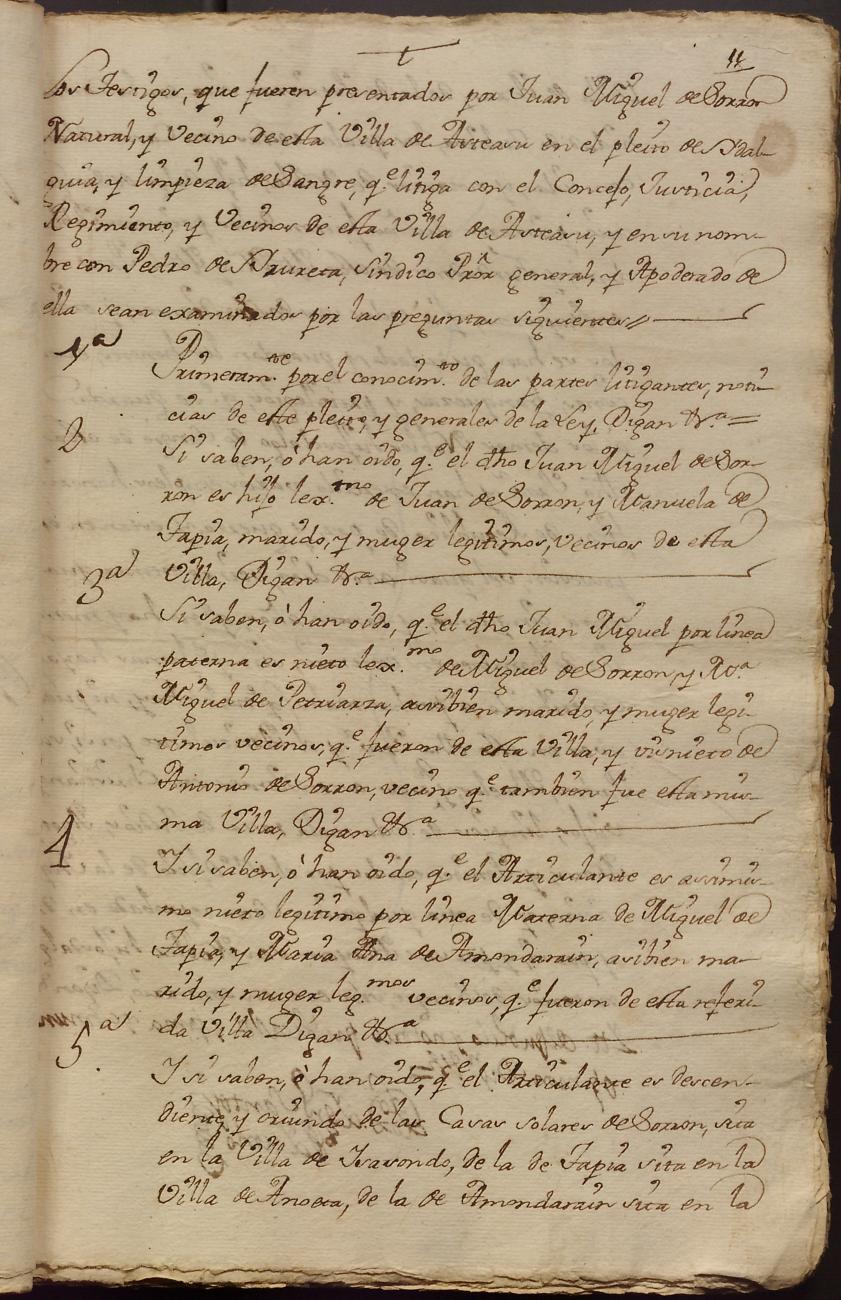 11
Los Testigos, que fueren presentados por Juan Miguel de Sorron
Natural, y Vecino de esta Villa de Asteasu en el pleito de Ydal-
guia, y limpieza de Sangre, q.e litiga con el Concejo, Justicia,
Regimiento, y Vecinos de esta Villa de Asteasu, y en su nom-
bre con Pedro de Yrureta, Sindico Prór general, y Apoderado de
ella sean examinados por las preguntas siguientes
1ª
Primeram.te por el conocim.to de las partes litigantes, noti-
cias de este pleito, y generales de la Ley, Digan &.a =
2
Si saben, ó han oido, q.e el dho Juan Miguel de Sor-
ron es hijo lex.mo de Juan de Sorron, y Manuela de
Tapia, marido, y muger legitimos, vecinos de esta
Villa, Digan &.a
3ª
Si saben, ó han oido, q.e el dho Juan Miguel por linea
paterna es nieto lex.mo de Miguel de Sorron, y M.a
Miguel de Petriarza, assibien marido, y muger legi-
timos vecinos, q.e fueron de esta Villa, y visnieto de
Antonio de Sorron, vecino q.e tambien fue esta mis-
ma Villa, Digan &.a
4
Y si saben, ó han oido, q.e el Articulante es assimis-
mo nieto legitimo por linea Materna de Miguel de
Tapia, y Maria Ana de Amondarain, asibien ma-
rido, y muger leg.mos vecinos, q.e fueron de esta referi-
da Villa Digan &.a
5ª
Y si saben, ó han oido, q.e el Articulante es descen-
diente y oriundo de las Casas solares de Sorron, sita
en la Villa de Isasondo, de la de Tapia sita en la
Villa de Anoeta, de la de Amondarain sita en la